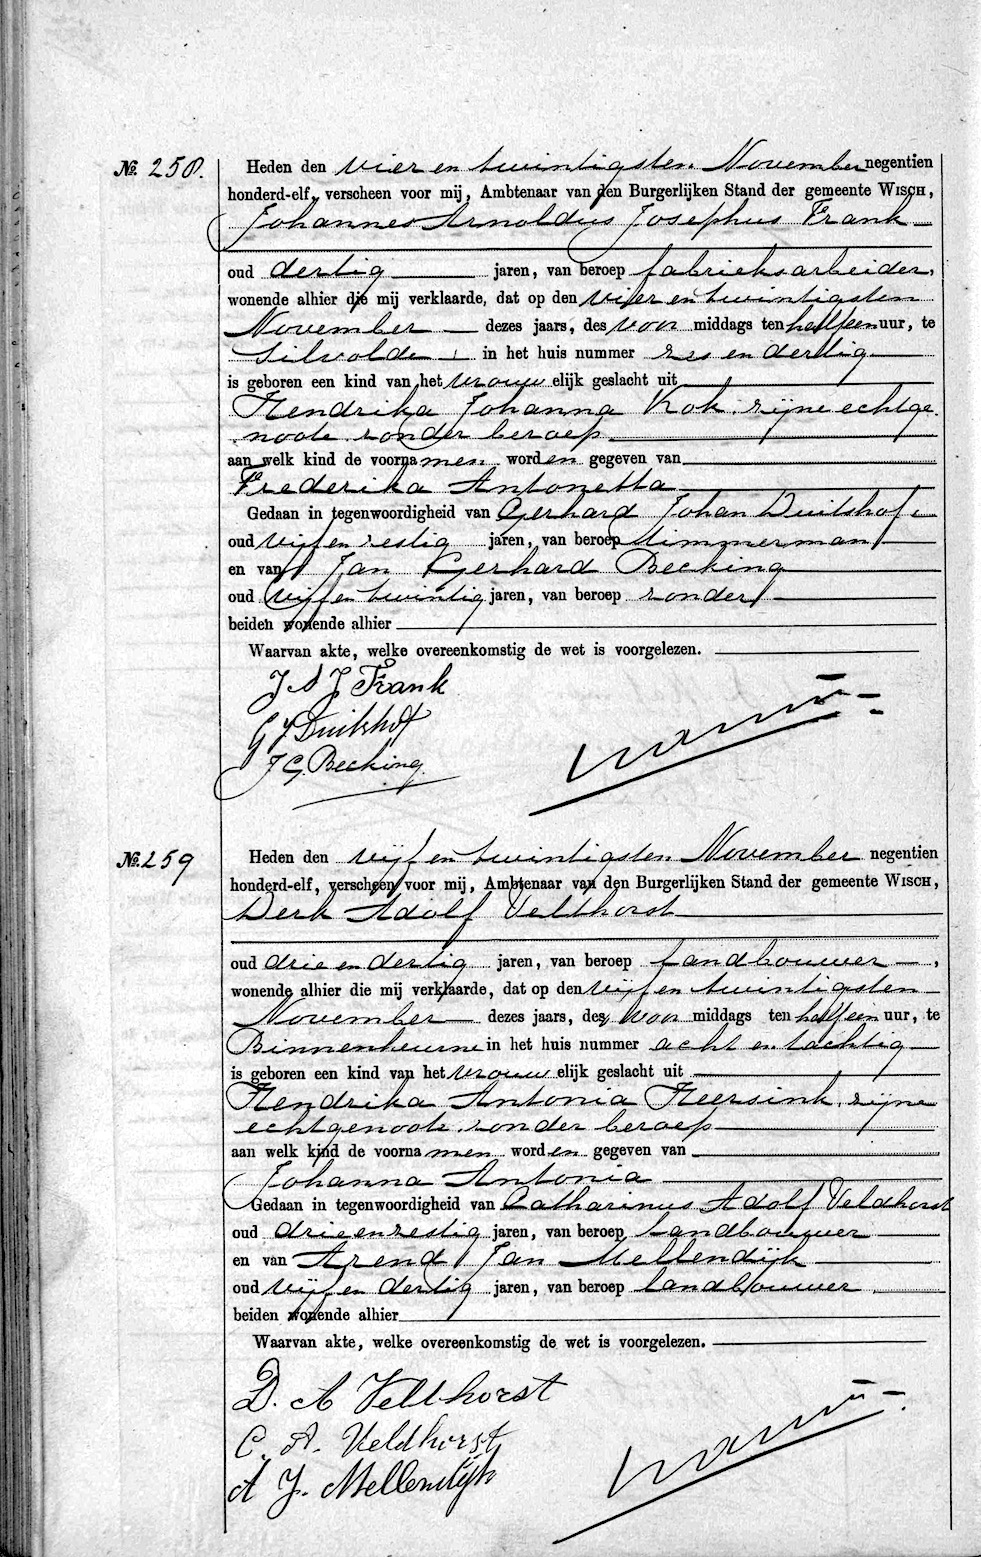 No. 258. Heden den vier en twintigsten November negentien
honderd-elf, verscheen voor mij, Ambtenaar van den Burgerlijken Stand der gemeente WISCH,
Johannes Arnoldus Josephus Frank
oud dertig jaren, van beroep fabrieksarbeider,
wonende alhier die mij verklaarde, dat op den vier en twintigsten
November dezes jaars, des voor middags ten half een uur, te
Silvolde in het huis nummer zes en dertig
is geboren een kind van het vrouw elijk geslacht uit
Hendrika Johanna Kok zijne echtge
noote zonder beroep
aan welk kind de voorna men word en gegeven van
Frederika Antonetta
Gedaan in tegenwoordigheid van Gerhard Johan Duitshof
oud vijf en zestig jaren, van beroep timmerman
en van Jan Gerhard Becking
oud vijf en twintig jaren, van beroep zonder
beiden wonende alhier
Waarvan akte, welke overeenkomstig de wet is voorgelezen.
J A J Frank
G J Duitshof
J G. Becking.
No. 259 Heden den vijf en twintigsten November negentien
honderd-elf, verscheen voor mij, Ambtenaar van den Burgerlijken Stand der gemeente WISCH,
Derk Adolf Velthorst
oud drie en dertig jaren, van beroep landbouwer,
wonende alhier die mij verklaarde, dat op den vijf en twintigsten
November dezes jaars, des voor middags ten half een uur, te
Binnenheurne in het huis nummer acht en tachtig
is geboren een kind van het vrouw elijk geslacht uit
Hendrika Antonia Heersink, zijne
echtgenoote zonder beroep
aan welk kind de voorna men word en gegeven van
Johanna Antonia
Gedaan in tegenwoordigheid van Catharinus Adolf Veldhorst
oud drie en zestig jaren, van beroep landbouwer
en van Arend Jan Mellendijk
oud vijf en dertig jaren, van beroep landbouwer
beiden wonende alhier
Waarvan akte, welke overeenkomstig de wet is voorgelezen.
D. A Velthorst
C. A. Veldhorst
A J. Mellendijk